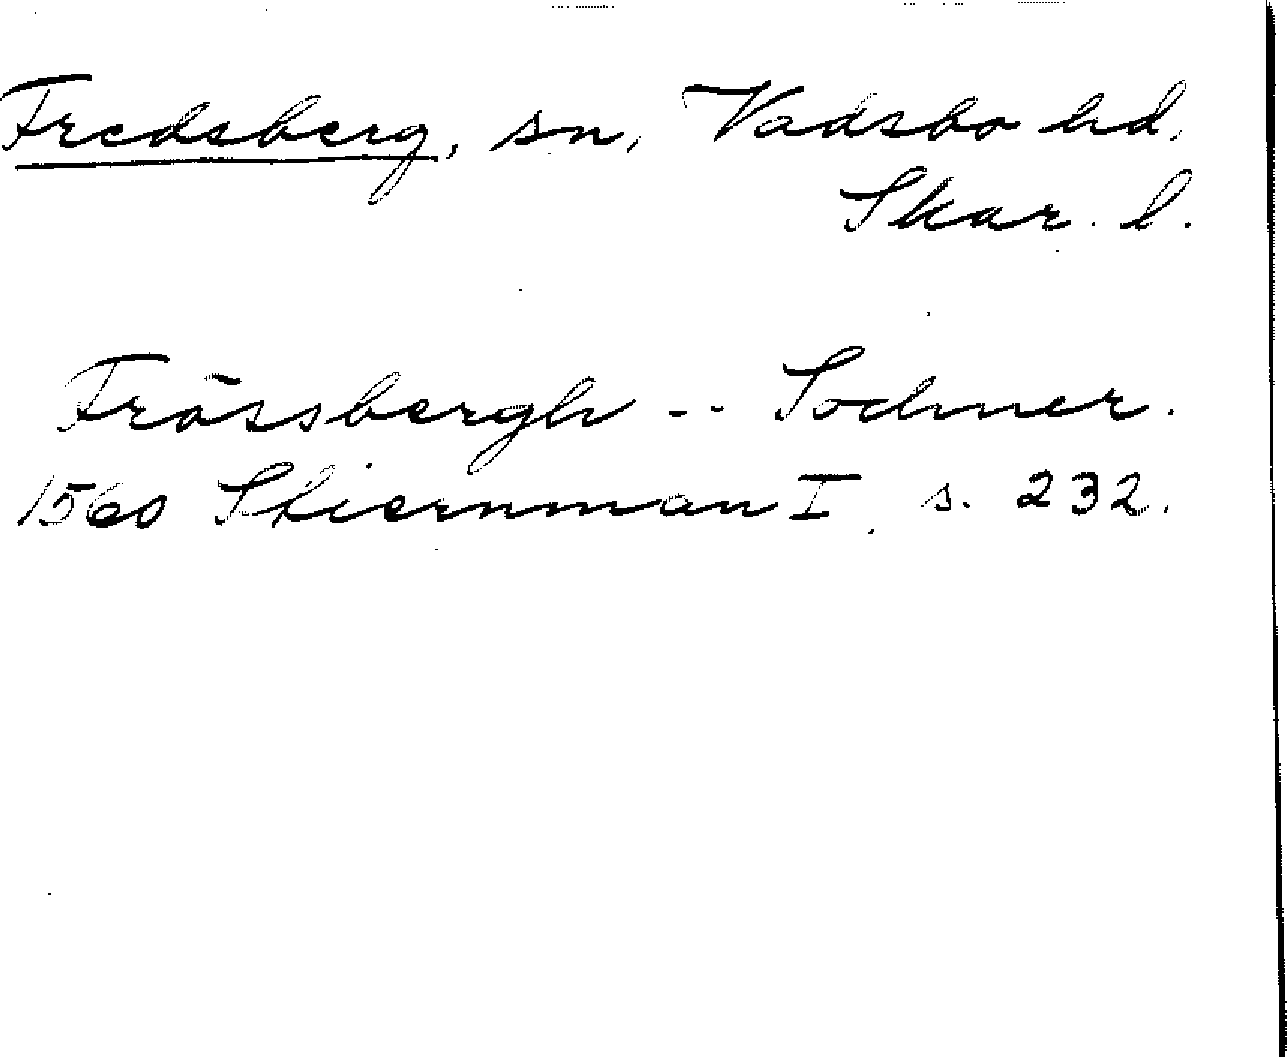 Fredsberg, sn, Vadsbo hd,
Skar. l.
Frössbergh -- Sochner.
1560 Stiernman I, s. 232.